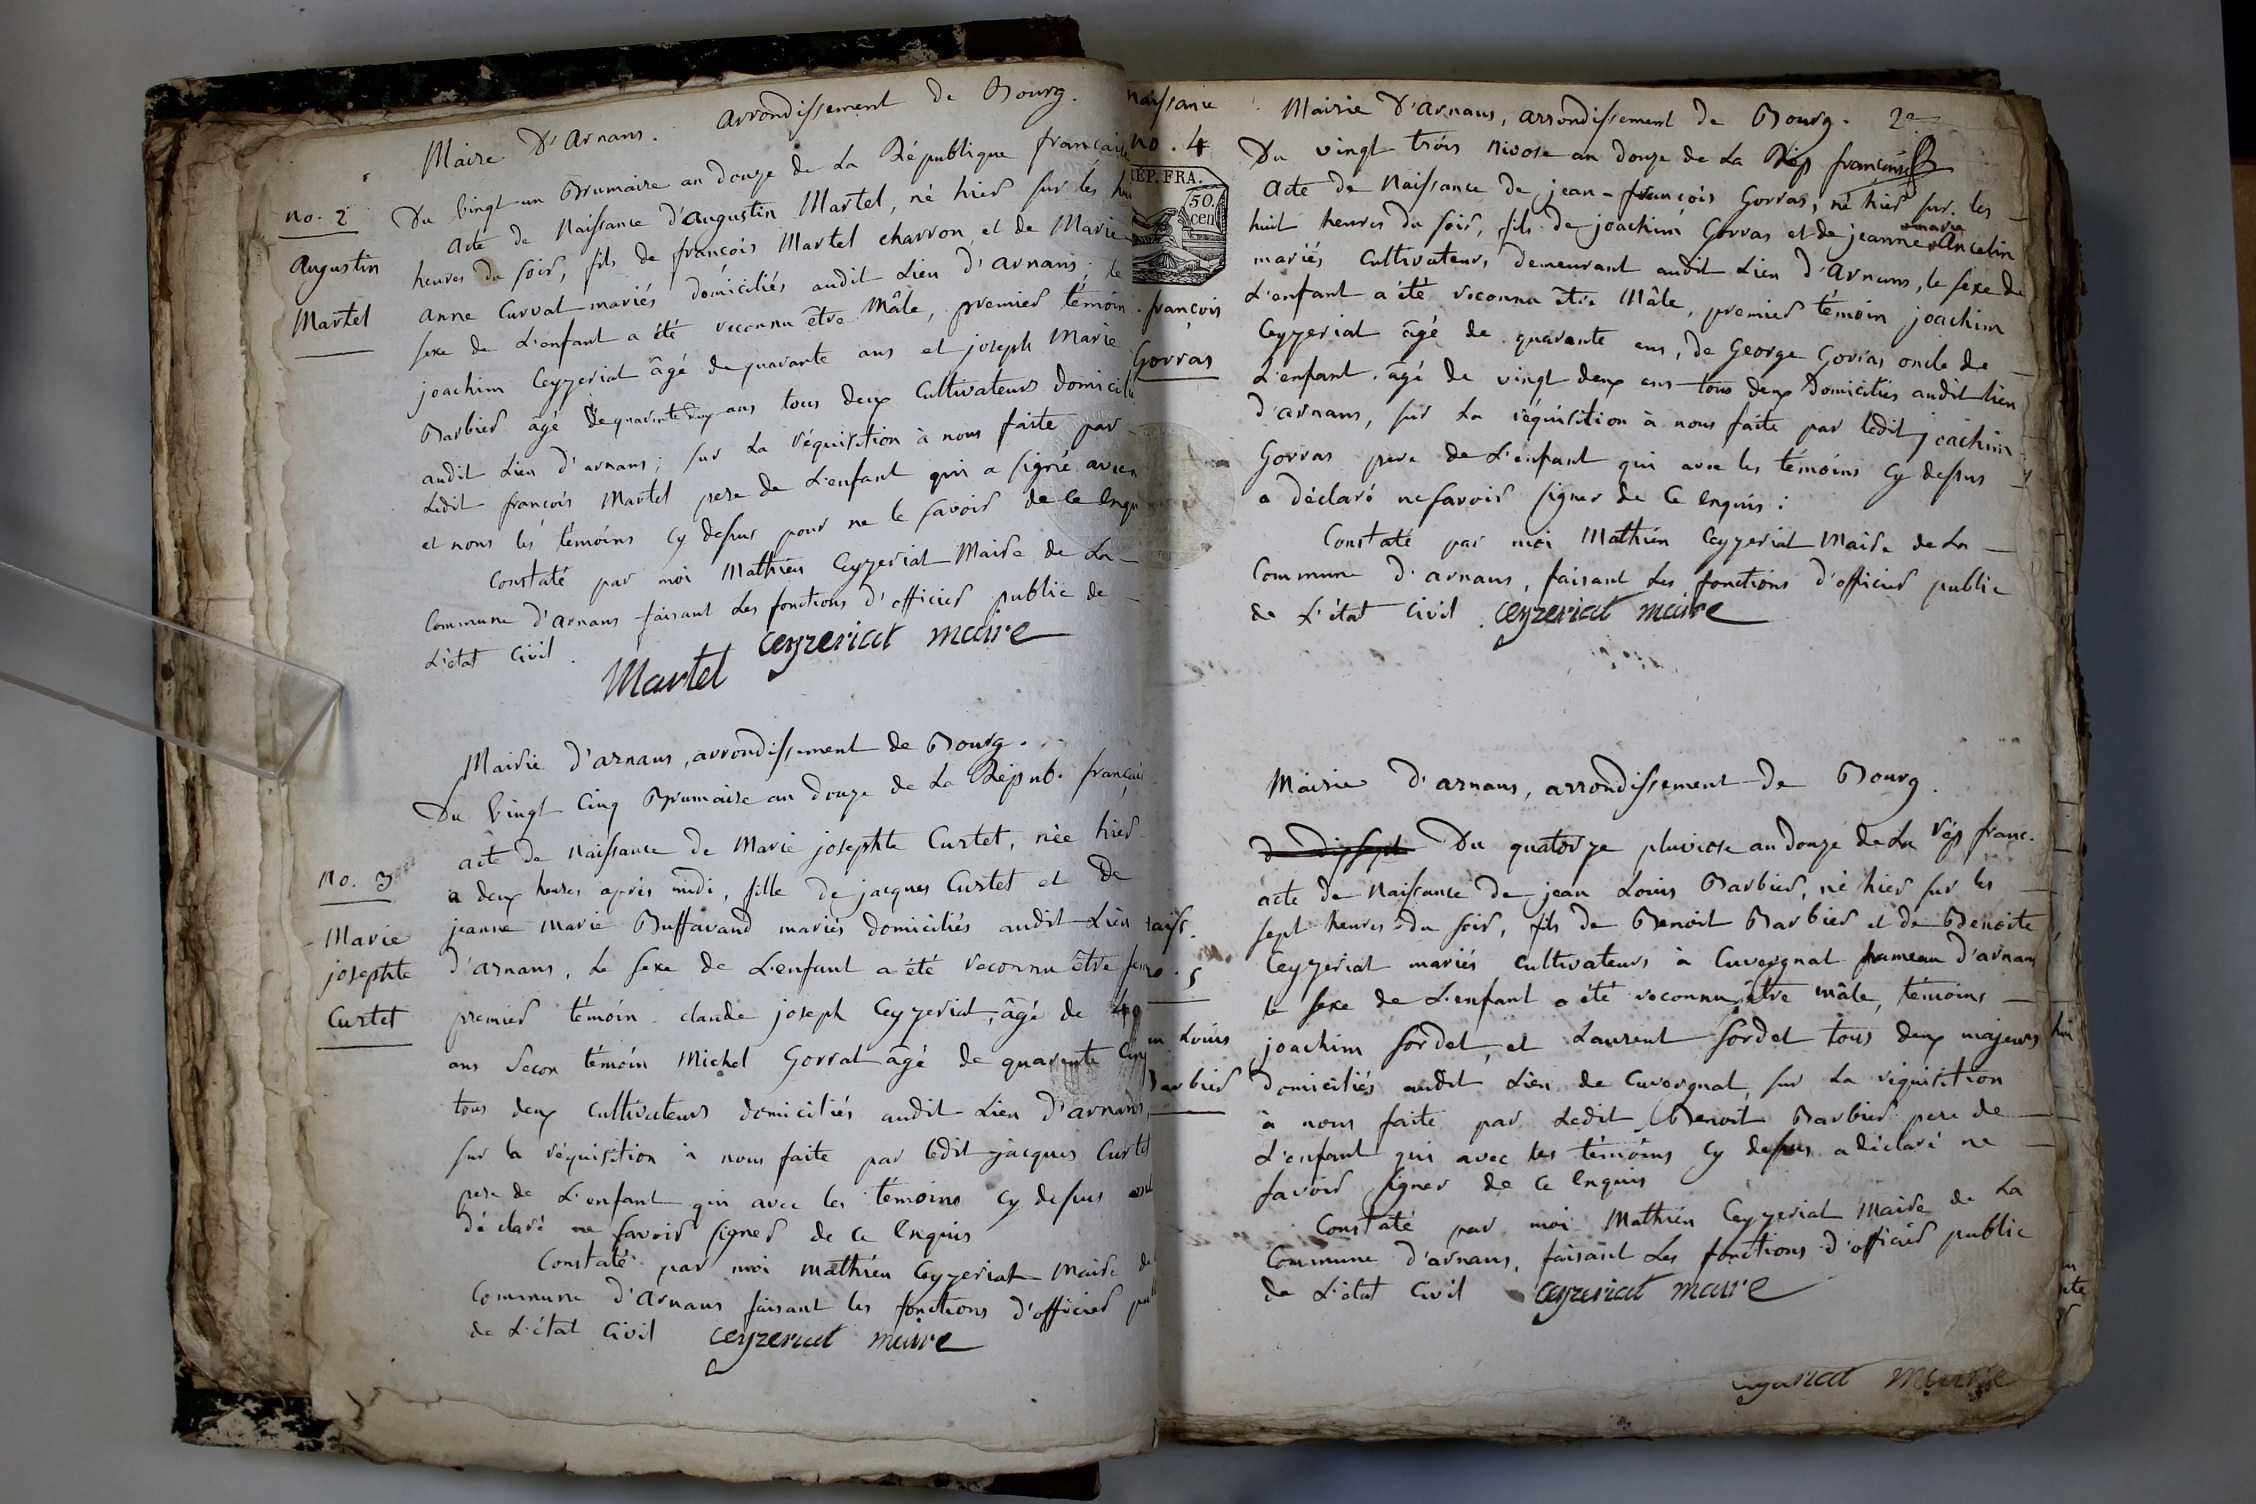 Maire d'arnans. arrondissement de Bourg.
no. 2
Augustin
Martel
Du vingt un Brumaire an douze de la République française
acte de Naissance d'augustin Martel, né hier sur les hui
heures du soir, fils de françois Martel charron et de Marie
anne Curvat mariés domiciliés audit Lieu d'arnans; le
sexe de L'enfant a été reconnu être Mâle, premier témoin
joachim Ceyzeriat âgé de quarante ans et joseph Marie
Barbier âgé de quarante cinq ans tous deux Cultivateurs domicilié
audit Lieu d'arnans; sur la réquisition à nous faite par
Ledit françois Martel pere de L'enfant qui a signé avec
et nous les témoins cy dessus pour ne le savoir de ce enqu
Constaté par moi Mathieu Ceyzeriat Maire de La
Commune d'arnans faisant Les fonctions d'officier public de
L'état Civil.
Martel ceyzeriat maire
Mairie d'arnans, arrondissement de Bourg.
no. 3
Marie
josephte
Curtet
Du vingt Cinq Brumaire an douze de La Répub. françai
acte de Naissance de Marie josephte Curtet, née hier
a deux heures après midi, fille de jacques Curtet et de
jeanne Marie Buffavand mariés domiciliés audit Lieu
d'arnans, Le sexe de L'enfant a été reconnu être fem
premier témoin claude joseph Ceyzeriat, âgé de 40
ans Secon témoin Michel Gorrat âgé de quarante Cinq
tous deux Cultivateurs domiciliés audit Lieu d'arnans,
sur la réquisition à nous faite par ledit jacques Curtet
pere de L'enfant qui avec les témoins cy dessus
déclaré ne savoir signer de ce enquis
Constaté par moi mathieu Ceyzeriat Maire de
Commune d'Arnans faisant les fonctions d'officier pu
de L'état Civil ceyzeriat maire
naissance
no. 4
RÉP. FRA.
50.
cen
françois
Gorras
Mairie d'Arnans, arrondissement de Bourg. 2e
Du vingt trois Nivose an douze de La Rép française
acte de Naissance de jean-françois Gorras, né hier sur les
huit heures du soir, fils de joachim Gorras et de jeanne marie Ancelin
mariés Cultivateurs demeurant audit Lieu d'Arnans, le sexe de
L'enfant a été reconnu être Mâle, premier témoin joachim
Ceyzeriat âgé de quarante ans, de George Gorras oncle de
L'enfant âgé de vingt deux ans tous deux Domiciliés audit lieu
d'arnans, sur La réquisition à nous faite par ledit joachim
Gorras pere de L'enfant qui avec les témoins cy dessus
a déclaré ne savoir signer de Ce enquis:
Constaté par moi Mathieu Ceyzeriat Maire de La
Commune d'arnans, faisant Les fonctions d'officier public
de L'état Civil ceyzeriat maire
Mairie d'arnans, arrondissement de Bourg.
naiss.
no. 5
Louis
Barbier
Du quatorze pluviose an douze de La rép franc.
acte de Naissance de jean Louis Barbier, né hier sur les
sept heures du soir, fils de Benoit Barbier et de Benoite
Ceyzeriat mariés cultivateurs à Cuvergnat hameau d'arnans
le sexe de L'enfant a été reconnu être mâle, témoins
joachim Sordet, et Laurent Sordet tous deux majeurs
domiciliés audit Lieu de Cuvergnat, sur La réquisition
à nous faite par Ledit Benoit Barbier pere de
L'enfant qui avec les témoins cy dessus a déclaré ne
savoir signer de Ce enquis
Constaté par moi Mathieu Ceyzeriat Maire de La
Commune d'arnans, faisant Les fonctions d'officier public
de L'état Civil ceyzeriat maire
maire